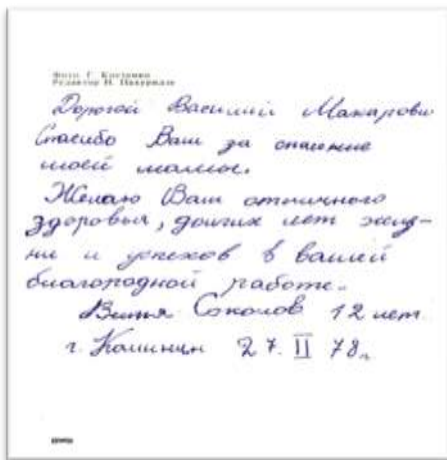 Фото Г. Костенко
Редактор Н.
Дорогой Василий Макарович
Спасибо Вам за спасение
моей мамы.
Желаю Вам отличного
здоровья, долгих лет жиз-
ни и успехов в вашей
благородной работе.
Витя Соколов 12 лет.
г. Калинин 27. II 78г.